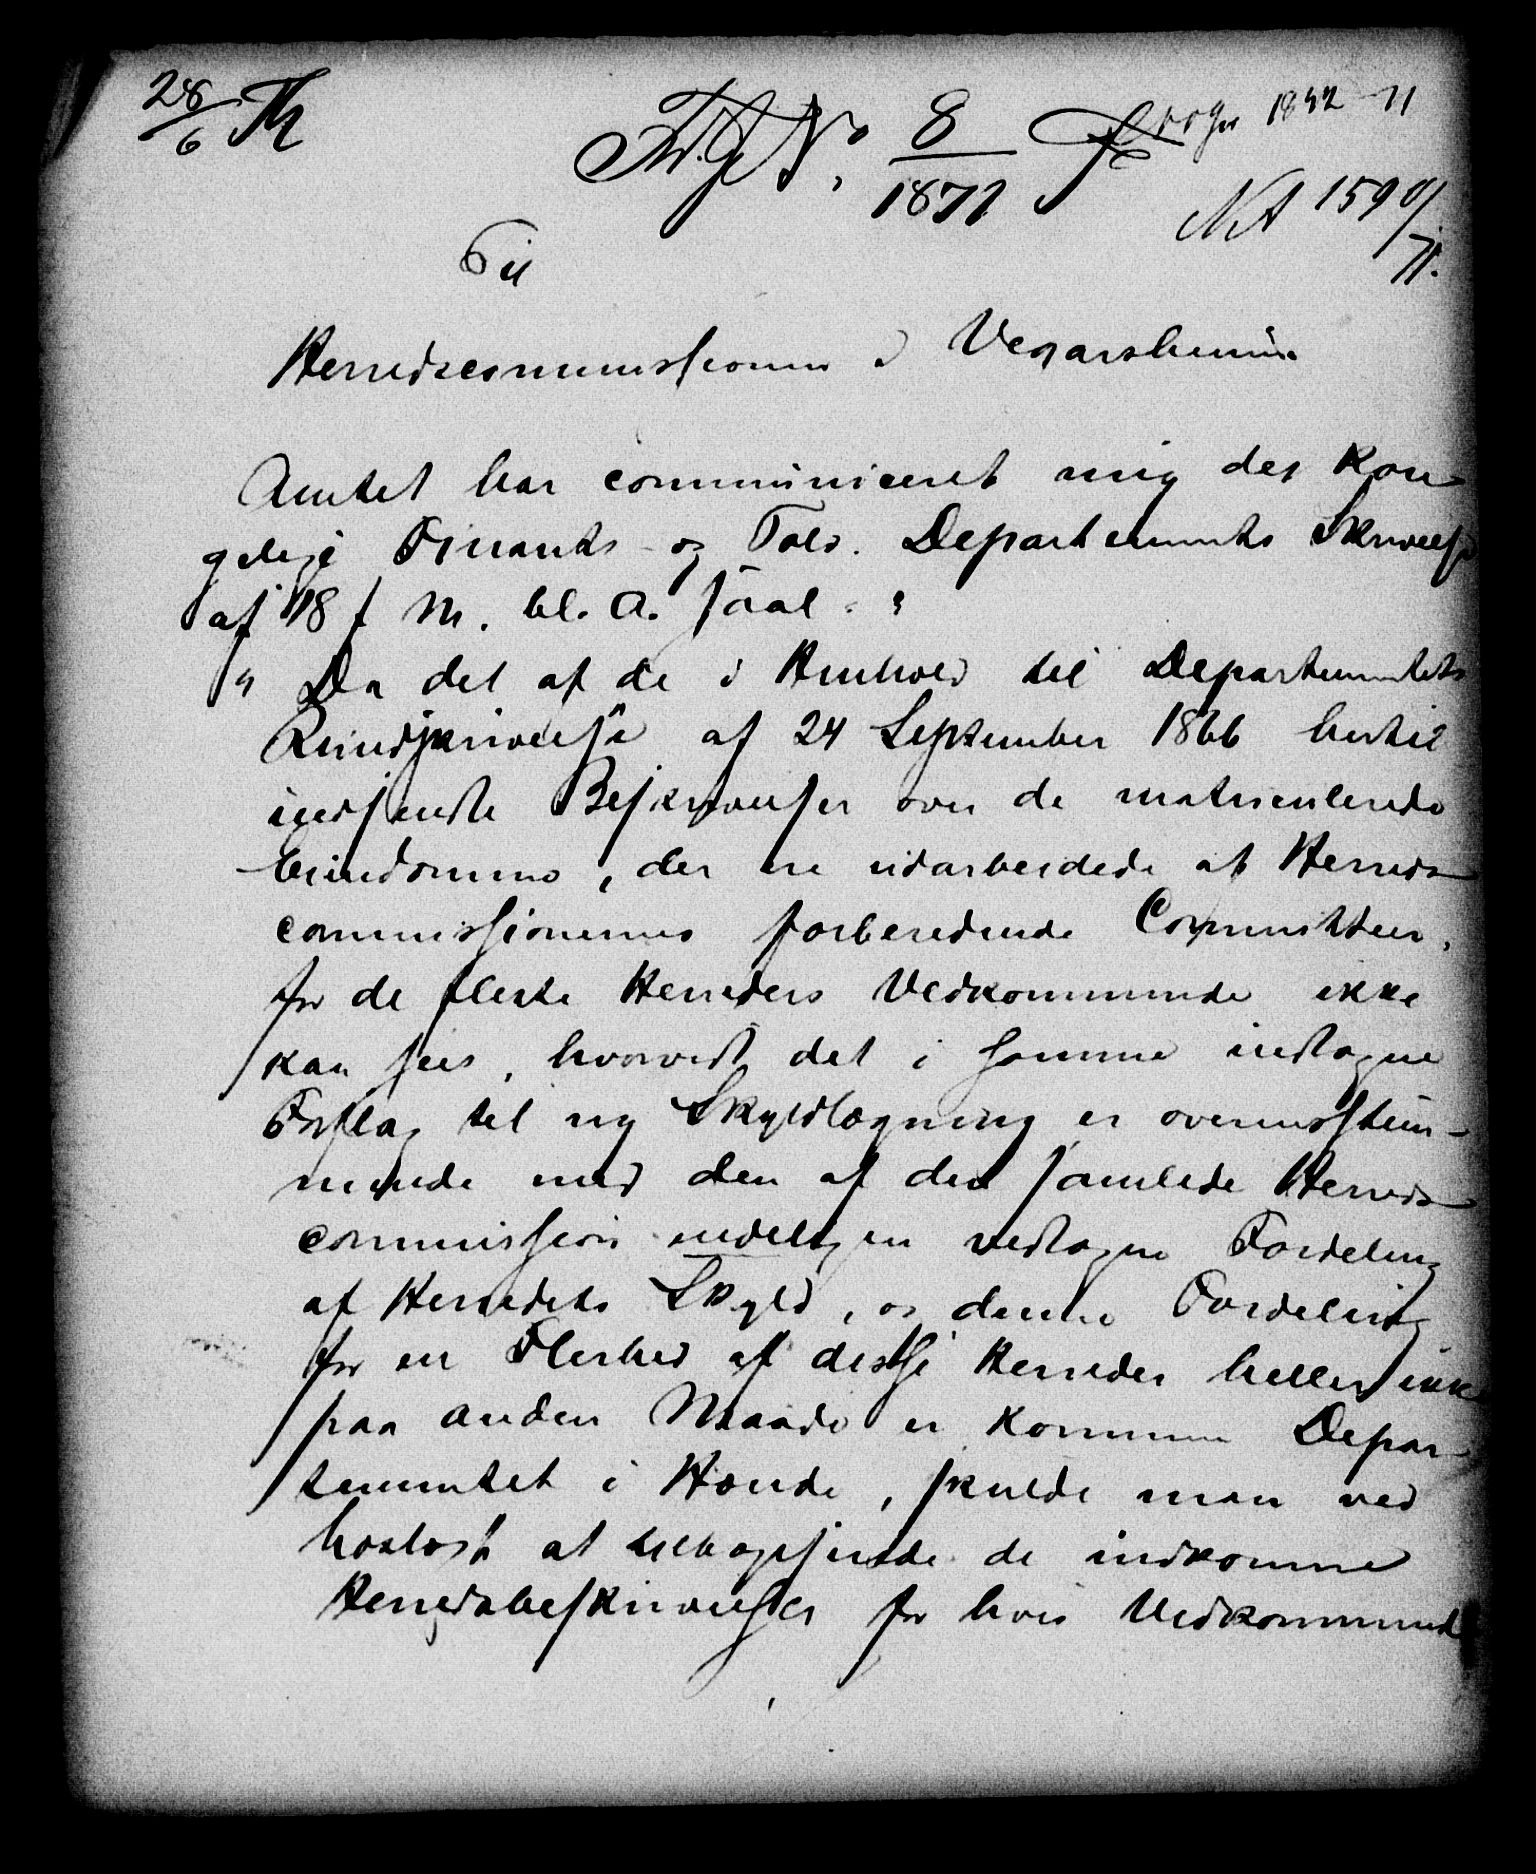 28/6
No 8/1871
1842-71
NA 1590/71.
Til
Herredscommissionen i Vegarsheien
Amtet har communiceret mig det Kon-
gelige Finants- og Told. Departements Skrivelse
af 18 f. M. bl. A. saal.:
"Da det af de i Henhold til Departementets
Rundskrivelse af 24 September 1866 hertil
indsendte Beskrivelser over de matriculerede
Eiendomme, der ere udarbeidede af Herreds
commissionernes forberedende Committeer,
for de fleste Herreders Vedkommende ikke
kan sees, hvorvidt det i samme indtagne
Forslag til ny Skyldlægning er overensstem-
mende med den af den samlede Herreds
commission endeligen vedtagne Fordeling
af Herredets Skyld, og denne Fordeling
for en Flerhed af disse Herreder heller ikke
paa anden Maade er kommen Depar-
tementet i Hænde, skulde man ved
hoslagt at tilbagesende de indkomne
Herredsbeskrivelser for hvis Vedkommende